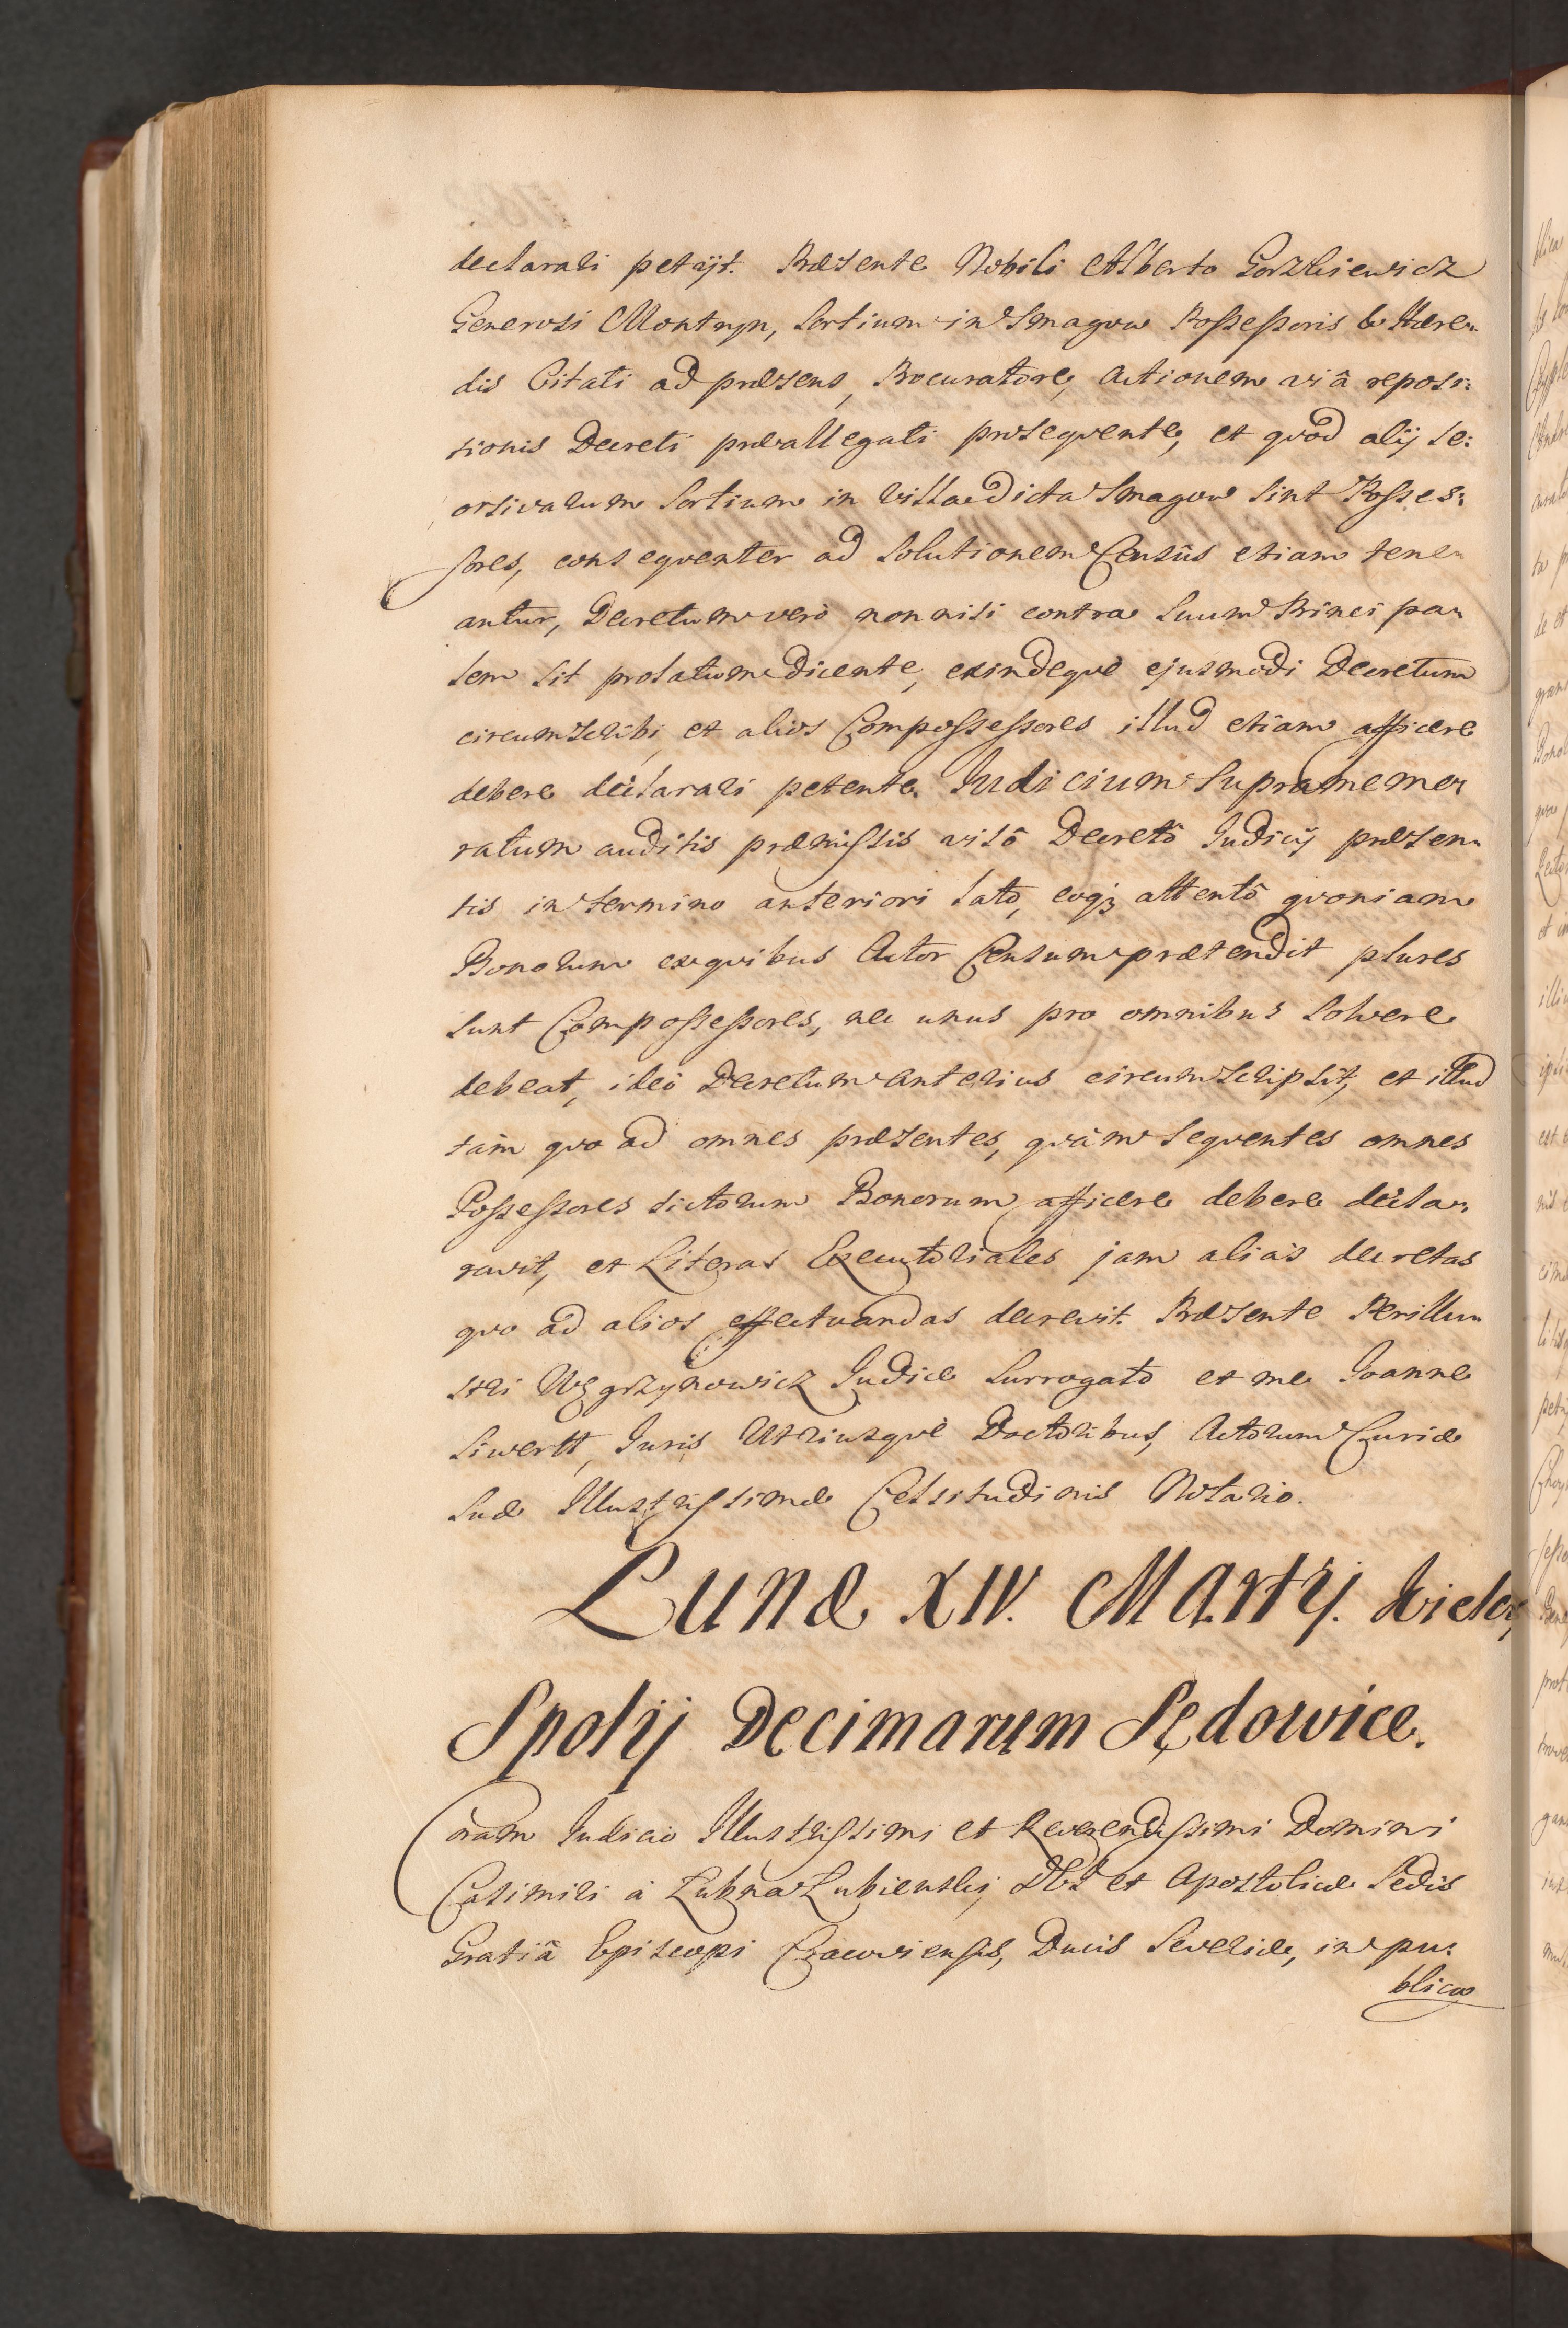 declarari petijt. Præsente Nobili Alberto Gorzkiewicz
Generosi Montryn, Sortium in Smagow Possessoris & Hære-
dis Citati ad præsens, Procuratore, Actionem viâ reposi:
tionis Decreti præallegati prosequente, et quòd alij se:
orsivarum Sortium in Villa dicta Smagow sint Posses:
sores, consequenter ad Solutionem Censûs etiam tene-
antur, Decretum verò non nisi contra Suum Principa-
lem sit prolatum dicente, exindeque ejusmodi Decretum
circumscribi, et alios Compossessores illud etiam afficere
debere declarari petente. Judicium Supramemo-
ratum auditis præmissis visô Decretô Judicij præsen-
tis in termino anteriori lato, eoq; attentô quoniam
Bonorum ex quibus Actor Censum prætendit plures
sunt Compossessores, nec unus pro omnibus Solvere
debeat, ideò Decretum anterius circumscripsit, et illud
tàm quo ad omnes præsentes, quàm sequentes omnes
Possessores dictorum Bonorum afficere debere decla-
ravit, et Literas Executoriales jam aliàs decretas
quo ad alios effectuandas decrevit. Præsente Perillu-
stri Węgrzynowicz Judice Surrogato et me Joanne
Siwertt, Juris Utriusquè Doctoribus, Actorum Curiæ
Suæ Illustrissimæ Celsitudinis Notario.
Lunæ XIV. Martij.
Spolij Decimarum Sędowice.
Coram Judicio Illustrissimi et Reverendissimi Domini
Casimiri à Łubna Łubienski, DEI et Apostolicæ Sedis
Gratiâ Episcopi Cracoviensis, Ducis Severiæ, in pu:
blica